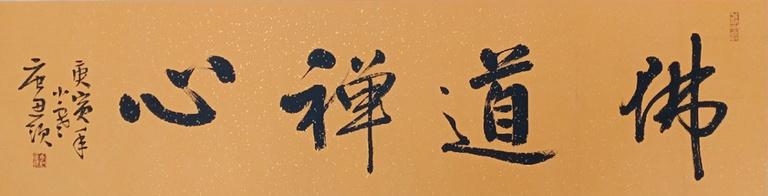 佛道禅心
庚寅年
小寒